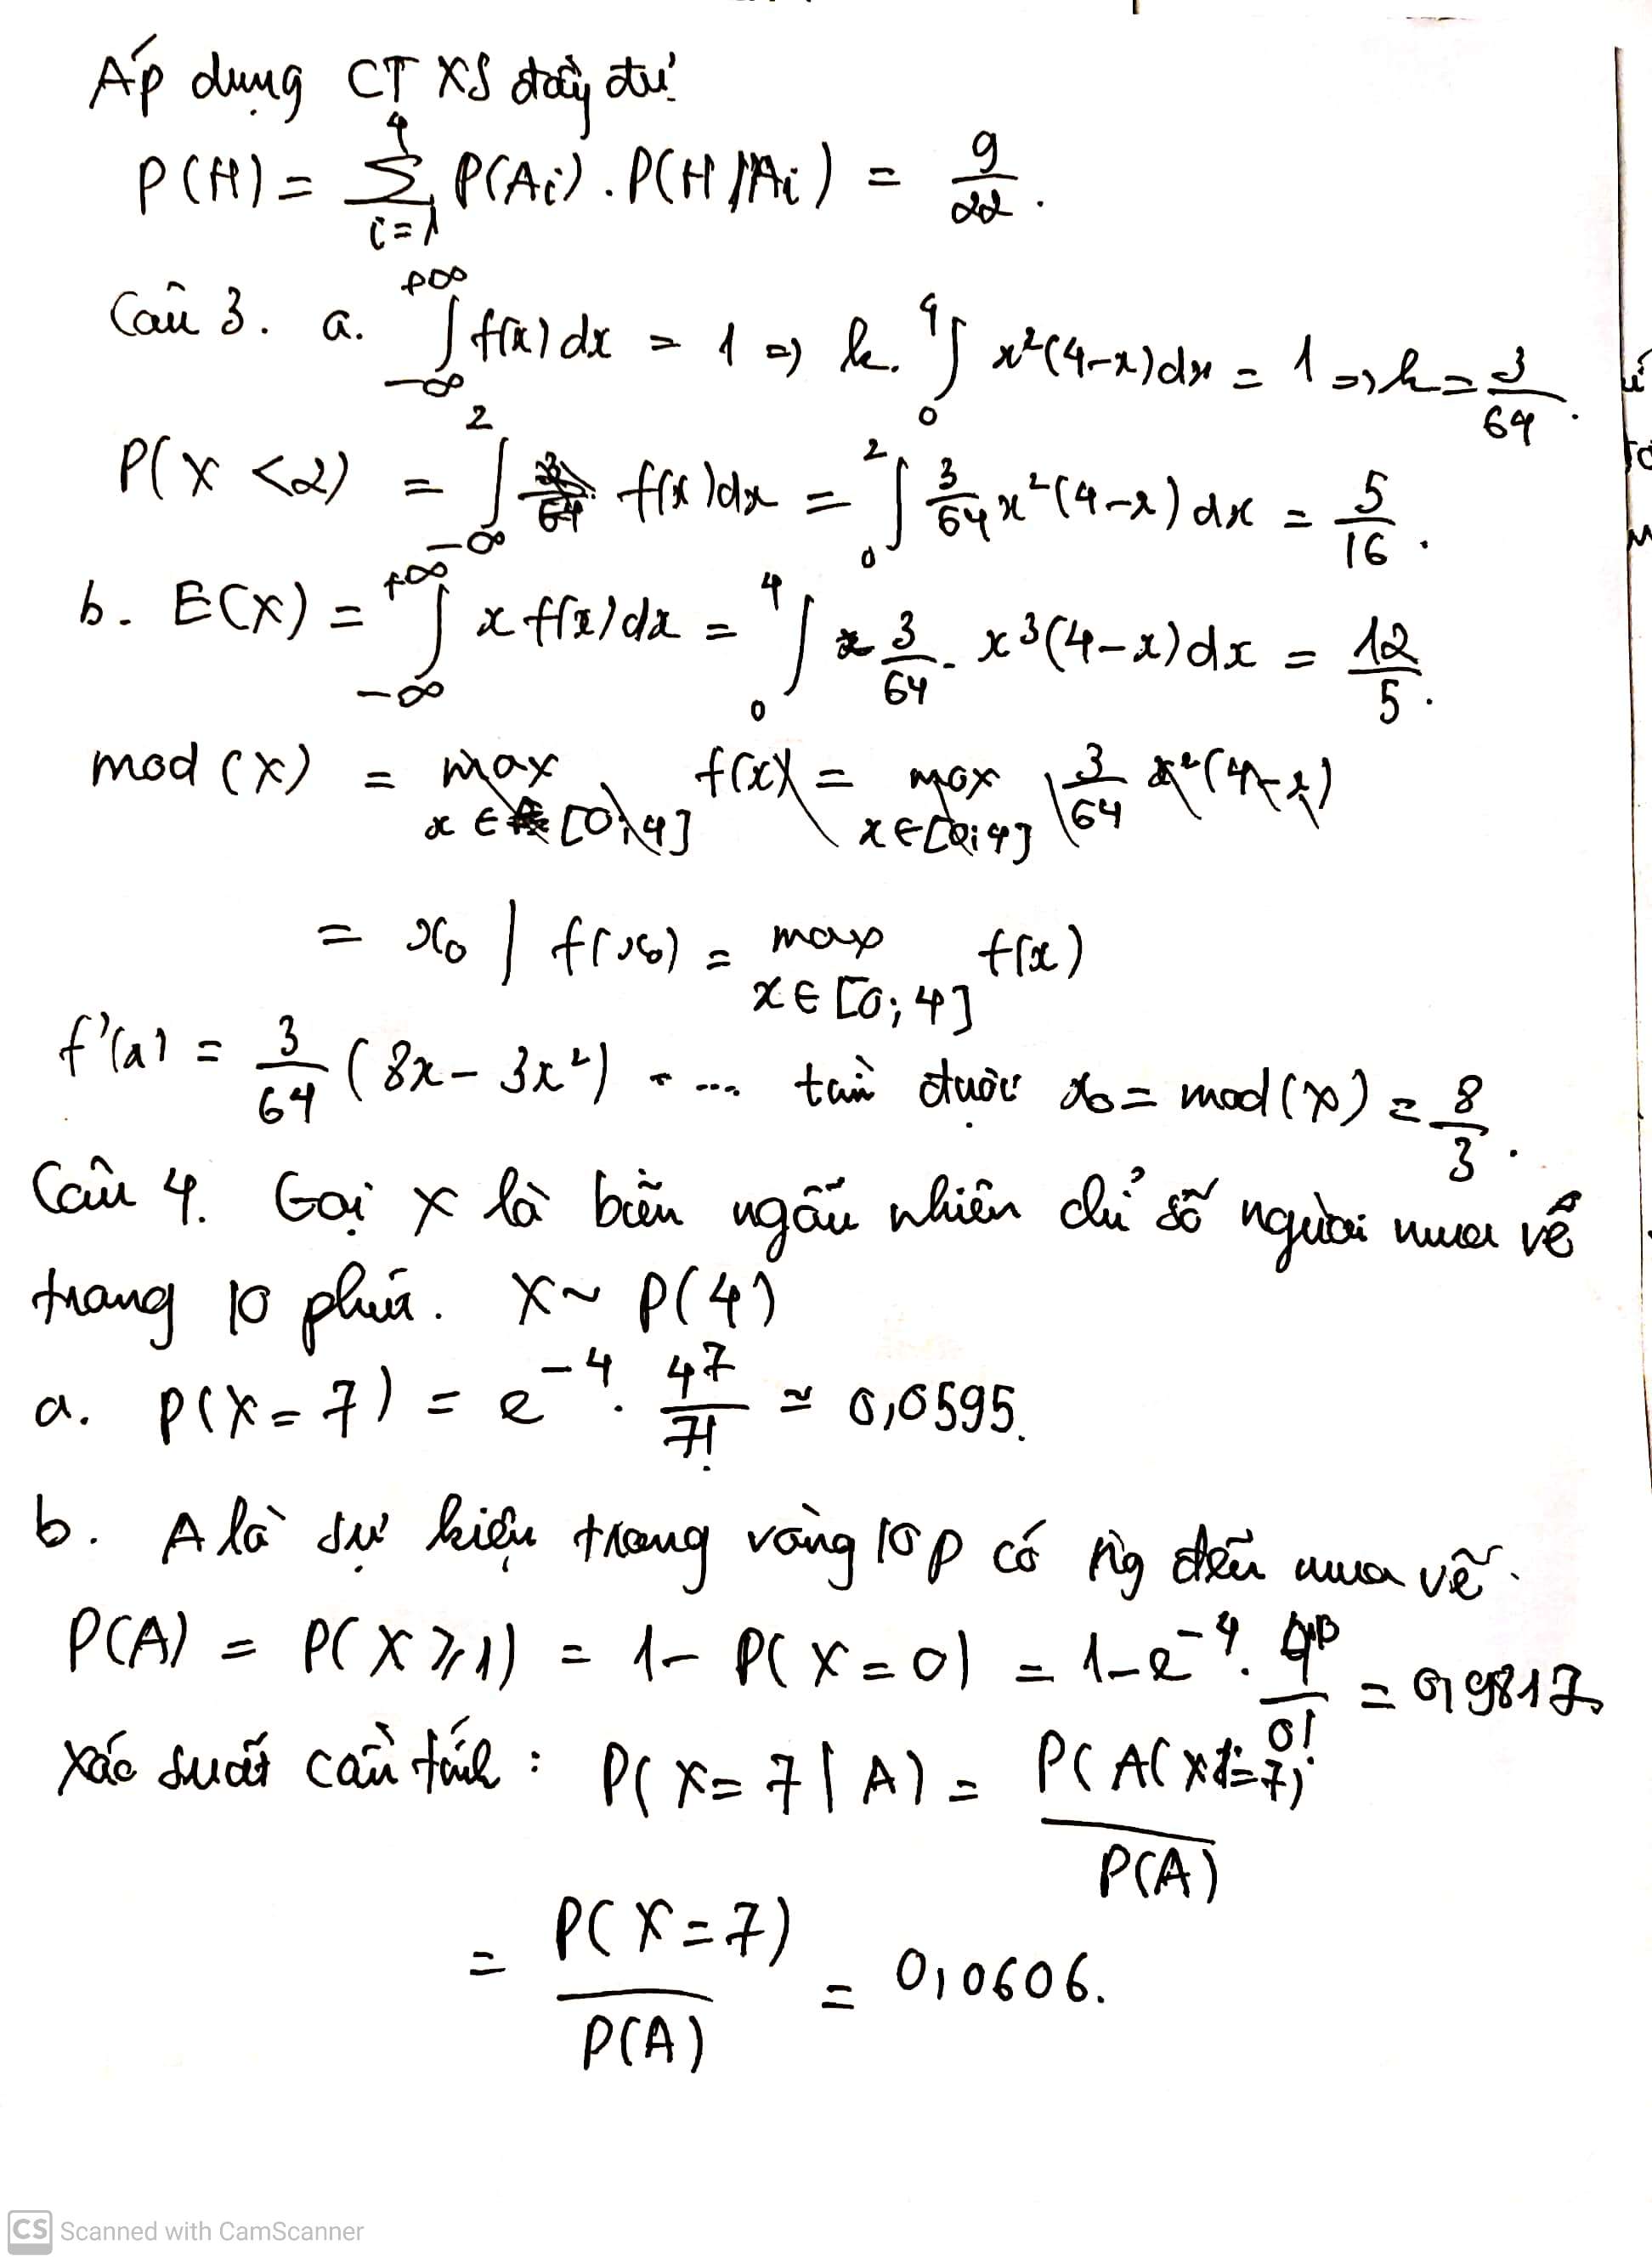 Áp dụng CT XS đầy đủ
P(H) = \sum_{i=1}^{4} P(Ai) . P(H/Ai) = 9/22 .
Câu 3. a. \int_{-∞}^{+∞} f(x) dx = 1 => k. \int_{0}^{4} x²(4-x)dx = 1 => k = 3/64 .
P(X <2) = \int_{-∞}^{2} f(x)dx = \int_{0}^{2} 3/64 x²(4-x) dx = 5/16 .
b. E(X) = \int_{-∞}^{+∞} x f(x)dx = \int_{0}^{4} 3/64 . x³(4-x)dx = 12/5 .
mod (X) = max_{x ∈ [0;4]} f(x) = max_{x∈[0;4]} 3/64 x²(4-x)
= x₀ | f(x₀) = max_{x∈[0;4]} f(x)
f'(x) = 3/64 (8x - 3x²) . ... tìm được x₀ = mod(X) = 8/3 .
Câu 4. Gọi X là biến ngẫu nhiên chỉ số người mua vé
trong 10 phút. X ~ P(4)
a. P(X=7) = e⁻⁴ . 4⁷/7! ≃ 0,0595.
b. A là sự kiện trong vòng 10p có ng đến mua vé.
P(A) = P(X ⩾ 1) = 1 - P(X=0) = 1 - e⁻⁴. 4⁰/0! = 0,9817
Xác suất cần tính : P(X=7 | A) = P(A(X=7))/P(A)
= P(X=7)/P(A) = 0,0606.
CS Scanned with CamScanner